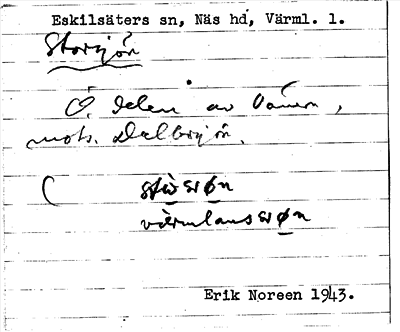 Eskilsäters sn, Näs hd, Värml. l.
Storsjön
Ö. delen av Vänern,
mots. Dalbosjön.
( stùrsøn
värmlanssøn
Erik Noreen 1943.